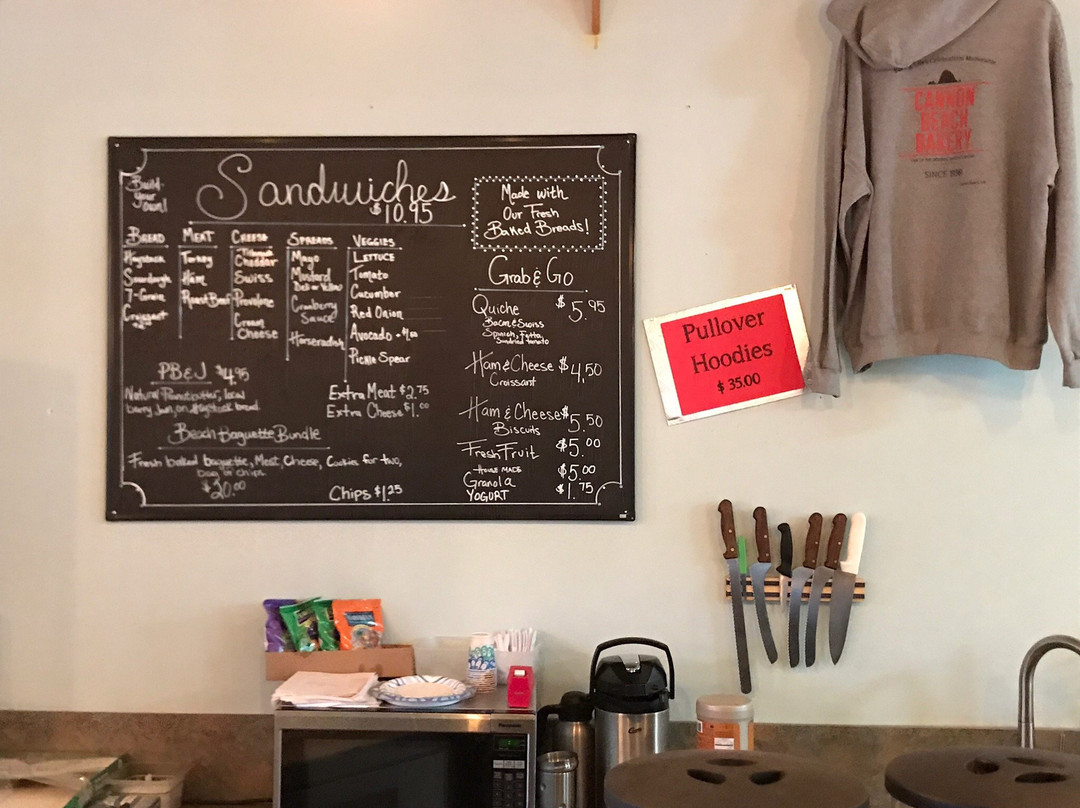 Build
your
own!
Sandwiches
$10.95
Made with
Our Fresh
Baked Breads!
BREAD
Haystack
Sourdough
7-Grain
Croissant
MEAT
Turkey
Ham
Roast Beef
CHEESE
Cheddar
Swiss
Provolone
Cream
Cheese
SPREADS
Mayo
Mustard
Deli or Yellow
Cranberry
Sauce
Horseradish
VEGGIES
LETTUCE
Tomato
Cucumber
Red Onion
Avocado
Pickle Spear
PB&J $4.95
Natural Peanutbutter, local
berry Jam, on Haystack bread
Extra Meat $2.75
Extra Cheese $1.00
Beach Baguette Bundle
Fresh baked baguette, Meat, Cheese, Cookies for two,
bag of chips.
$20.00
Chips $1.25
Grab & Go
Quiche $5.95
Bacon & Swiss
Spinach, Fetta,
Sundried tomato
Ham & Cheese $4.50
Croissant
Ham & Cheese $5.50
Biscuits
Fresh Fruit $5.00
HOUSE MADE
Granola $5.00
YOGURT $1.75
Pullover
Hoodies
$ 35.00
CANNON
BEACH
BAKERY
SINCE
Panasonic